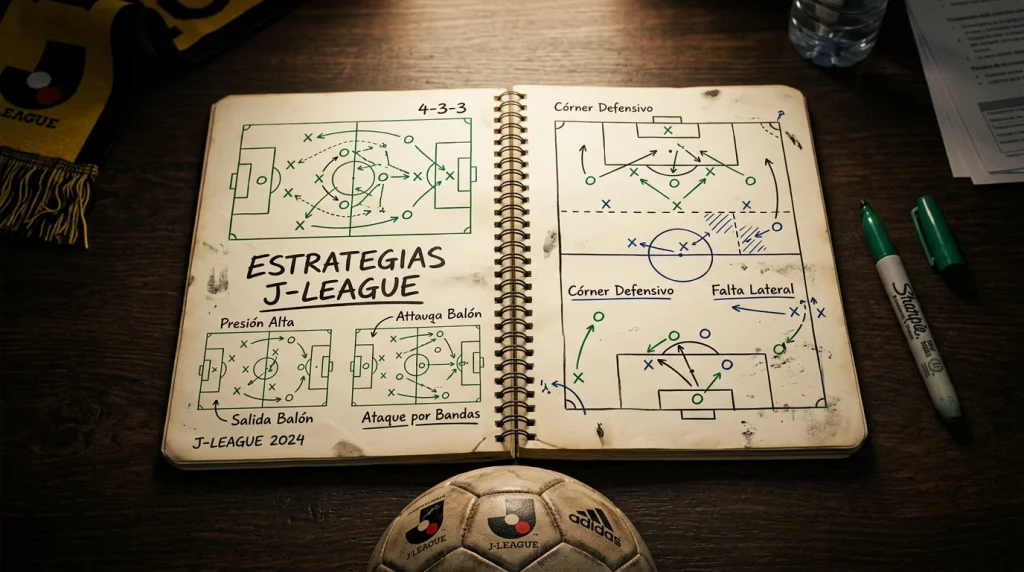 4-3-3
ESTRATEGIAS
J-LEAGUE
Presión Alta
Attauqa Balón
Salida Balón
Ataque por Bandas
J-LEAGUE 2024
Córner Defensivo
Córner Defensivo
Falta Lateral
LEAGUE
Sharpie
J-LEAGUE
J-LEAGUE
adidas